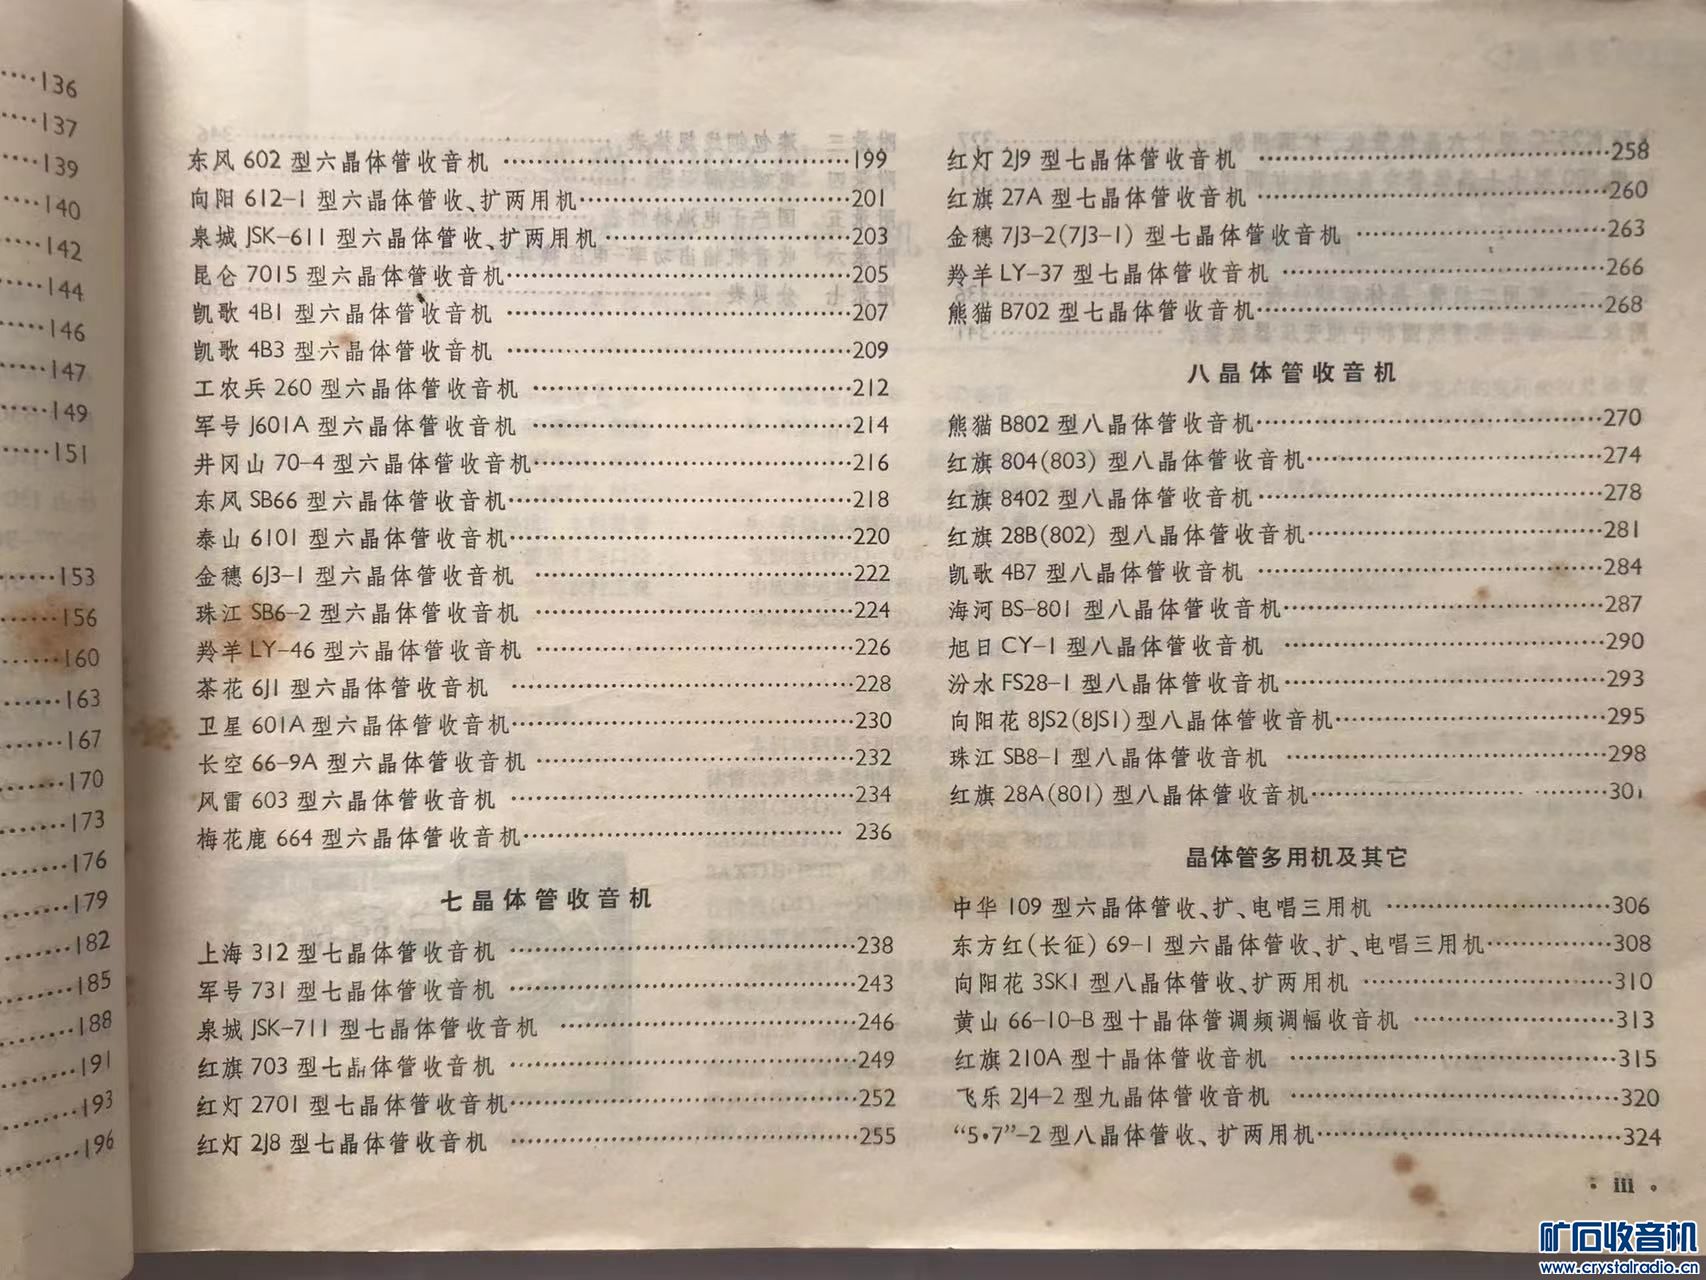 ····136
····137
····139
····140
····142
····144
····146
····147
····149
····151
······153
······156
······160
······163
······167
······170
······173
······176
······179
······182
······185
······188
······191
······193
······196
东风 602 型六晶体管收音机 ······199
向阳 612-1 型六晶体管收、扩两用机······201
泉城 JSK-611 型六晶体管收、扩两用机······203
昆仑 7015 型六晶体管收音机······205
凯歌 4B1 型六晶体管收音机 ······207
凯歌 4B3 型六晶体管收音机 ······209
工农兵 260 型六晶体管收音机 ······212
军号 J601A 型六晶体管收音机 ······214
井冈山 70-4 型六晶体管收音机······216
东风 SB66 型六晶体管收音机······218
泰山 6101 型六晶体管收音机······220
金穗 6J3-1 型六晶体管收音机 ······222
珠江 SB6-2 型六晶体管收音机 ······224
羚羊 LY-46 型六晶体管收音机 ······226
茶花 6J1 型六晶体管收音机 ······228
卫星 601A 型六晶体管收音机······230
长空 66-9A 型六晶体管收音机 ······232
风雷 603 型六晶体管收音机 ······234
梅花鹿 664 型六晶体管收音机······ 236
七晶体管收音机
上海 312 型七晶体管收音机 ······238
军号 731 型七晶体管收音机 ······243
泉城 JSK-711 型七晶体管收音机 ······246
红旗 703 型七晶体管收音机 ······249
红灯 2701 型七晶体管收音机······252
红灯 2J8 型七晶体管收音机 ······255
红灯 2J9 型七晶体管收音机 ······258
红旗 27A 型七晶体管收音机 ······260
金穗 7J3-2(7J3-1) 型七晶体管收音机 ······263
羚羊 LY-37 型七晶体管收音机 ······266
熊猫 B702 型七晶体管收音机······268
八晶体管收音机
熊猫 B802 型八晶体管收音机······270
红旗 804(803) 型八晶体管收音机······274
红旗 8402 型八晶体管收音机 ······278
红旗 28B(802) 型八晶体管收音机······281
凯歌 4B7 型八晶体管收音机 ······284
海河 BS-801 型八晶体管收音机······287
旭日 CY-1 型八晶体管收音机 ······290
汾水 FS28-1 型八晶体管收音机······293
向阳花 8JS2(8JS1) 型八晶体管收音机······295
珠江 SB8-1 型八晶体管收音机 ······298
红旗 28A(801) 型八晶体管收音机······301
晶体管多用机及其它
中华 109 型六晶体管收、扩、电唱三用机 ······306
东方红(长征) 69-1 型六晶体管收、扩、电唱三用机······308
向阳花 3SK1 型八晶体管收、扩两用机 ······310
黄山 66-10-B 型十晶体管调频调幅收音机 ······313
红旗 210A 型十晶体管收音机 ······315
飞乐 2J4-2 型九晶体管收音机 ······320
“5·7”-2 型八晶体管收、扩两用机······324
· iii ·
矿石收音机
www.crystalradio.cn